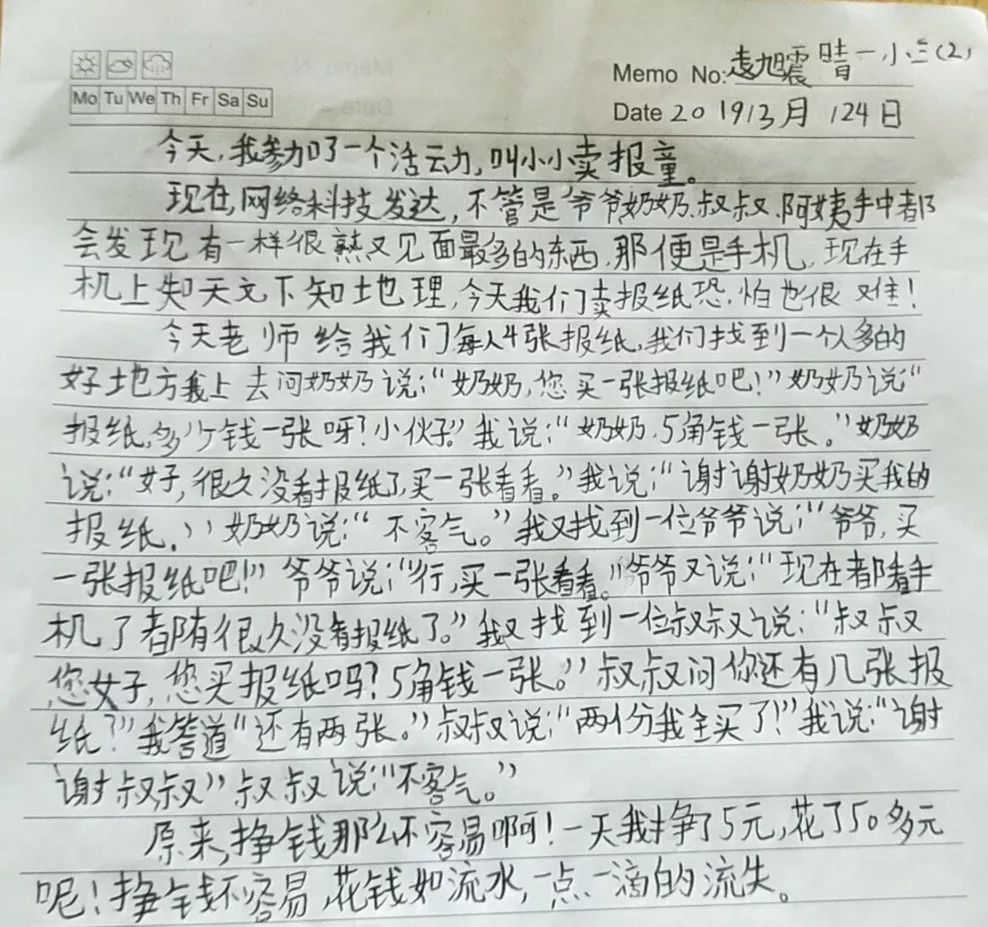 Memo No: 袁旭震 晴 一小三(2)
Mo Tu We Th Fr Sa Su
Date 2019/3月/24日
今天,我参加了一个活动,叫小小卖报童。
现在,网络科技发达,不管是爷爷奶奶、叔叔、阿姨手中都
会发现有一样很熟又见面最多的东西,那便是手机,现在手
机上知天文下知地理,今天我们卖报纸恐怕也很难!
今天老师给我们每人4张报纸,我们找到一个人多的
好地方我上去问奶奶说:“奶奶,您买一张报纸吧!”奶奶说“
报纸,多少钱一张呀?小伙子”我说:“奶奶,5角钱一张。”奶奶
说:“好,很久没看报纸了,买一张看看。”我说:“谢谢奶奶买我的
报纸。”奶奶说:“不客气。”我又找到一位爷爷说:“爷爷,买
一张报纸吧!”爷爷说:“行,买一张看看。”爷爷又说:“现在都看手
机了都有很久没看报纸了。”我又找到一位叔叔说:“叔叔
您好,您买报纸吗?5角钱一张。”叔叔问你还有几张报
纸?”我答道“还有两张。”叔叔说:“两份我全买了!”我说:“谢
谢叔叔”叔叔说:“不客气。”
原来,挣钱那么不容易啊!一天我挣了5元,花了50多元
呢!挣钱不容易,花钱如流水,一点一滴的流失。